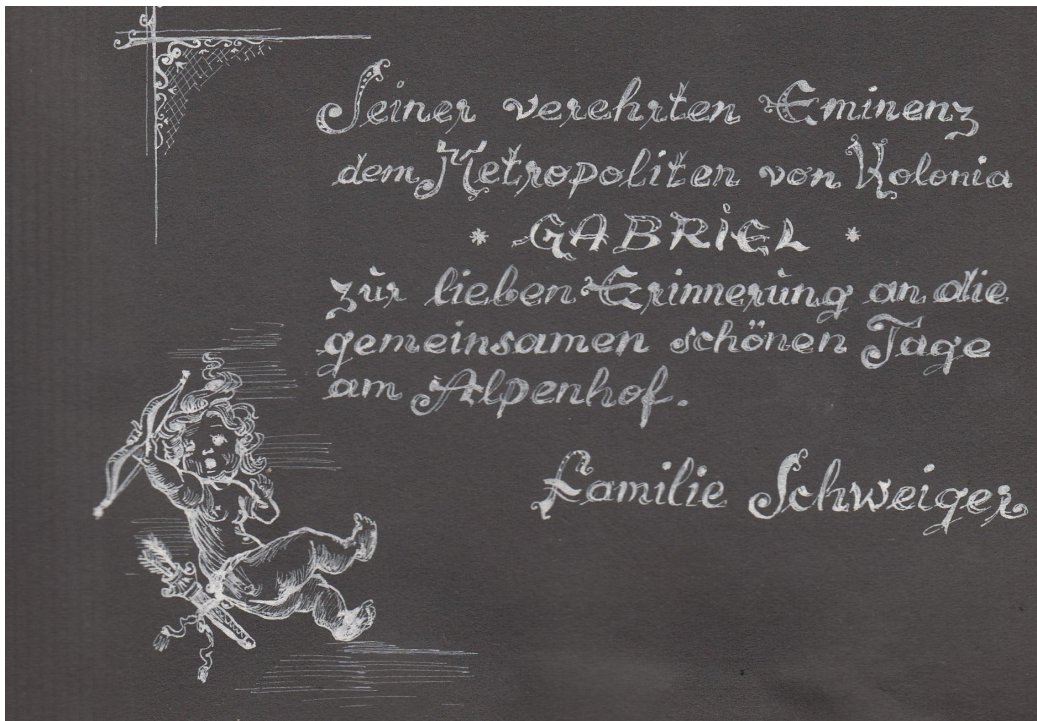 Seiner verehrten Eminenz
dem Metropoliten von Kolonia
* GABRIEL *
zur lieben Erinnerung an die
gemeinsamen schönen Tage
am Alpenhof.
Familie Schweiger